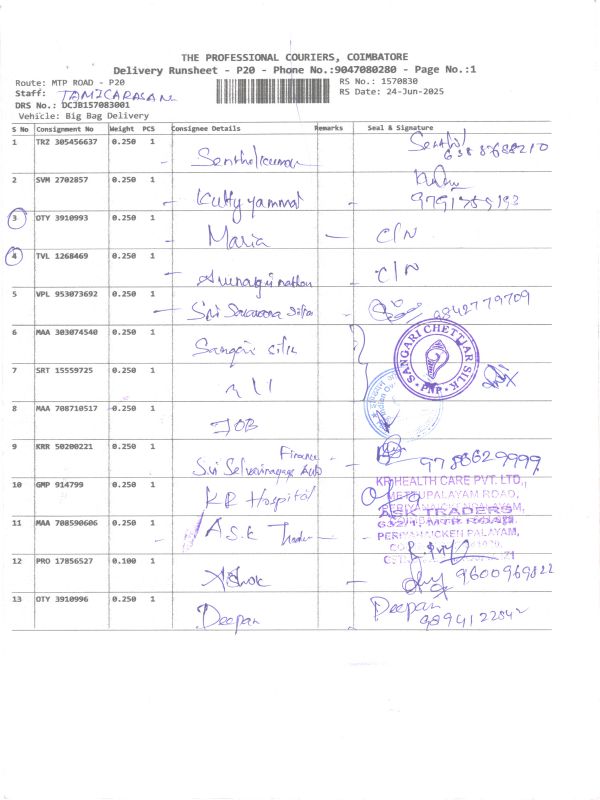 THE PROFESSIONAL COURIERS, COIMBATORE
Delivery Runsheet - P20 - Phone No.:9047080280 - Page No.:1
Route: MTP ROAD - P20 RS No.: 1570830
Staff: TAMICARASAN RS Date: 24-Jun-2025
DRS No.: DCJB157083001
Vehicle: Big Bag Delivery
S No Consignment No Weight PCS Consignee Details Remarks Seal & Signature
1 TRZ 305456637 0.250 1 Senthilkumar Senthil
2 SVM 2702857 0.250 1 Kuttyyammal
3 OTY 3910993 0.250 1 Maria C/N
4 TVL 1268469 0.250 1 C/N
5 VPL 953073692 0.250 1 Sri 9842779709
6 MAA 303074540 0.250 1 Sangari silk SANGARI CHETTIAR SILK PNP
7 SRT 15559725 0.250 1
8 MAA 708710517 0.250 1 IOB
9 KRR 50200221 0.250 1 Sri Selvavinayaga Auto Finance 9788629999
10 GMP 914799 0.250 1 KR Hospital KR HEALTH CARE PVT. LTD.,
METTUPALAYAM ROAD,
11 MAA 708590606 0.250 1 A.S.K Traders ASK TRADERS
632/1, MTR ROAD
PERIYANAICKEN PALAYAM,
12 PRO 17856527 0.100 1 Ashok 9600969822
13 OTY 3910996 0.250 1 Deepan Deepan
9894122842